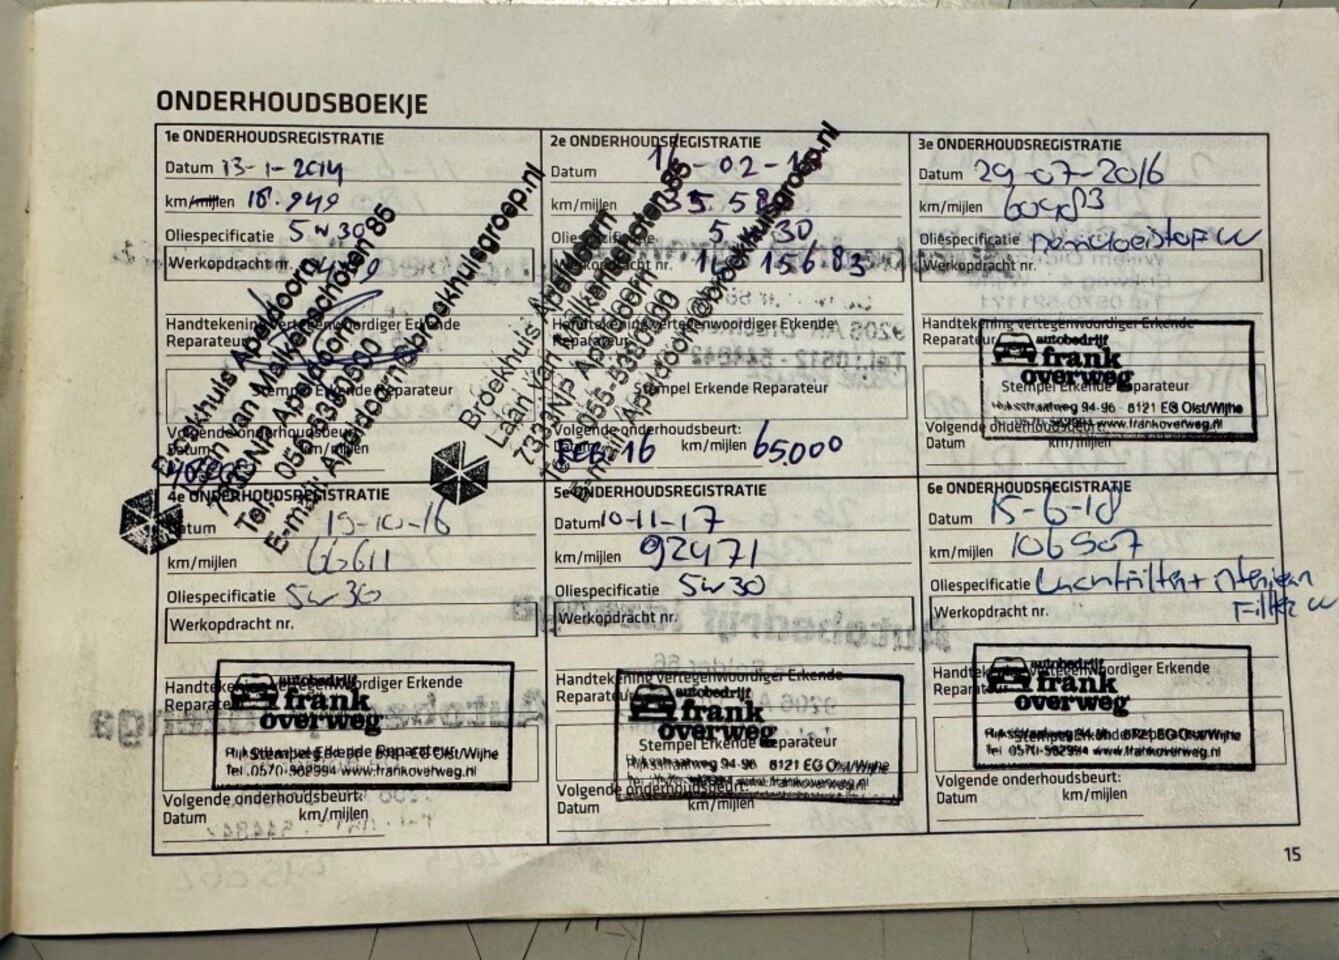 ONDERHOUDSBOEKJE
1e ONDERHOUDSREGISTRATIE
Datum 13-1-2014
km/mijlen 18.949
Oliespecificatie 5w30
Werkopdracht nr.
Handtekening vertegenwoordiger Erkende
Reparateur
Stempel Erkende Reparateur
Broekhuis Apeldoorn
Laan van Malkenschoten 85
7333NP Apeldoorn
Tel. 055-5380500
E-mail: Apeldoorn@broekhuisgroep.nl
Volgende onderhoudsbeurt:
Datum km/mijlen
2e ONDERHOUDSREGISTRATIE
Datum 02
km/mijlen
Oliespecificatie 5 30
Werkopdracht nr. 15683
Handtekening vertegenwoordiger Erkende
Reparateur
Stempel Erkende Reparateur
Broekhuis Apeldoorn
Laan van Malkenschoten 85
7333NP Apeldoorn
Tel. 055-5380500
E-mail: Apeldoorn@broekhuisgroep.nl
Volgende onderhoudsbeurt:
Datum FEB 16 km/mijlen 65000
3e ONDERHOUDSREGISTRATIE
Datum 29-07-2016
km/mijlen
Oliespecificatie
Werkopdracht nr.
Handtekening vertegenwoordiger Erkende
Reparateur
autobedrijf
frank
overweg
Stempel Erkende Reparateur
Rijksstraatweg 94-96 - 8121 EG Olst/Wijhe
tel. 0570-562994 www.frankoverweg.nl
Volgende onderhoudsbeurt:
Datum km/mijlen
4e ONDERHOUDSREGISTRATIE
Datum 19-10-16
km/mijlen 66611
Oliespecificatie 5w30
Werkopdracht nr.
Handtekening vertegenwoordiger Erkende
Reparateur
autobedrijf
frank
overweg
Stempel Erkende Reparateur
EG Olst/Wijhe
tel. 0570-562994 www.frankoverweg.nl
Volgende onderhoudsbeurt:
Datum km/mijlen
5e ONDERHOUDSREGISTRATIE
Datum 10-11-17
km/mijlen 92471
Oliespecificatie 5w30
Werkopdracht nr.
Handtekening vertegenwoordiger Erkende
Reparateur
autobedrijf
frank
overweg
Stempel Erkende Reparateur
Rijksstraatweg 94-96 8121 EG Olst/Wijhe
Volgende onderhoudsbeurt:
Datum km/mijlen
6e ONDERHOUDSREGISTRATIE
Datum 15-6-18
km/mijlen 106507
Oliespecificatie Luchtfilter + interieur
Filter
Werkopdracht nr.
Handtekening vertegenwoordiger Erkende
Reparateur
autobedrijf
frank
overweg
Stempel Erkende Reparateur
Rijksstraatweg 94-96 8121 EG Olst/Wijhe
tel. 0570-562994 www.frankoverweg.nl
Volgende onderhoudsbeurt:
Datum km/mijlen
15